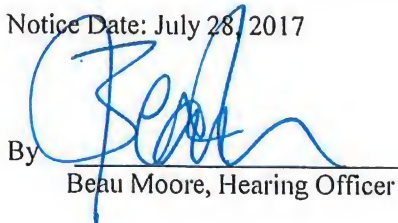 Notice Date: July 28, 2017
By
Beau Moore, Hearing Officer